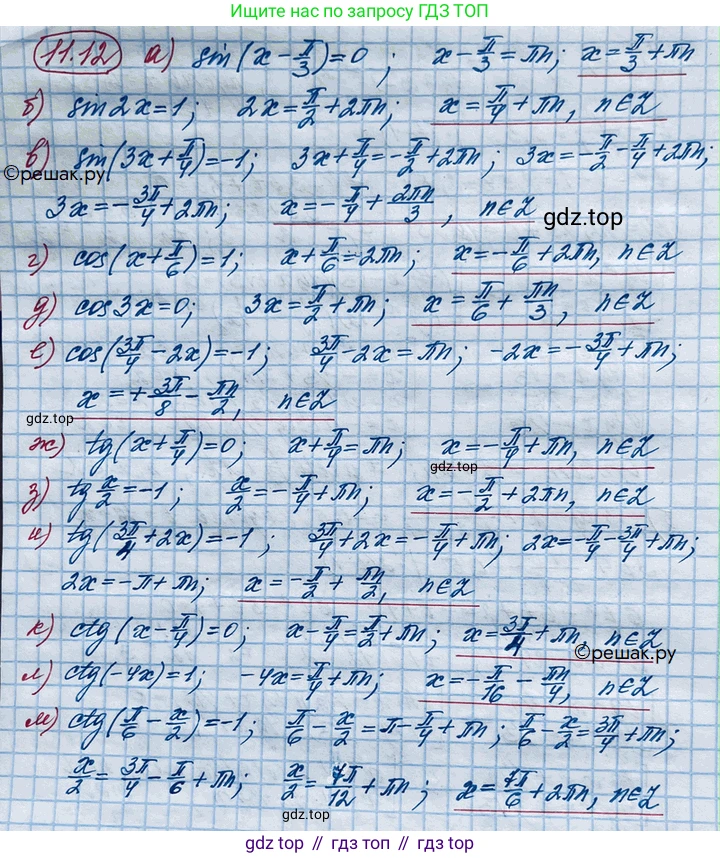 Ищите нас по запросу ГДЗ ТОП
11.12 а) sin(x-π/3)=0; x-π/3=πn; x=π/3+πn
б) sin2x=1; 2x=π/2+2πn; x=π/4+πn, n∈Z
в) sin(3x+π/4)=-1; 3x+π/4=-π/2+2πn; 3x=-π/2-π/4+2πn;
©решак.ру
3x=-3π/4+2πn; x=-π/4+2πn/3, n∈Z
gdz.top
г) cos(x+π/6)=1; x+π/6=2πn; x=-π/6+2πn, n∈Z
д) cos3x=0; 3x=π/2+πn; x=π/6+πn/3, n∈Z
е) cos(3π/4-2x)=-1; 3π/4-2x=πn; -2x=-3π/4+πn;
x=+3π/8-πn/2, n∈Z
gdz.top
ж) tg(x+π/4)=0; x+π/4=πn; x=-π/4+πn, n∈Z
gdz.top
з) tg x/2=-1; x/2=-π/4+πn; x=-π/2+2πn, n∈Z
и) tg(3π/4+2x)=-1; 3π/4+2x=-π/4+πn; 2x=-π/4-3π/4+πn;
2x=-π+πn; x=-π/2+πn/2, n∈Z
к) ctg(x-π/4)=0; x-π/4=π/2+πn; x=3π/4+πn, n∈Z
©решак.ру
л) ctg(-4x)=1; -4x=π/4+πn; x=-π/16-πn/4, n∈Z
м) ctg(π/6-x/2)=-1; π/6-x/2=π-π/4+πn; π/6-x/2=3π/4+πn;
x/2=3π/4-π/6+πn; x/2=7π/12+πn; x=7π/6+2πn, n∈Z
gdz.top // гдз топ // gdz.top